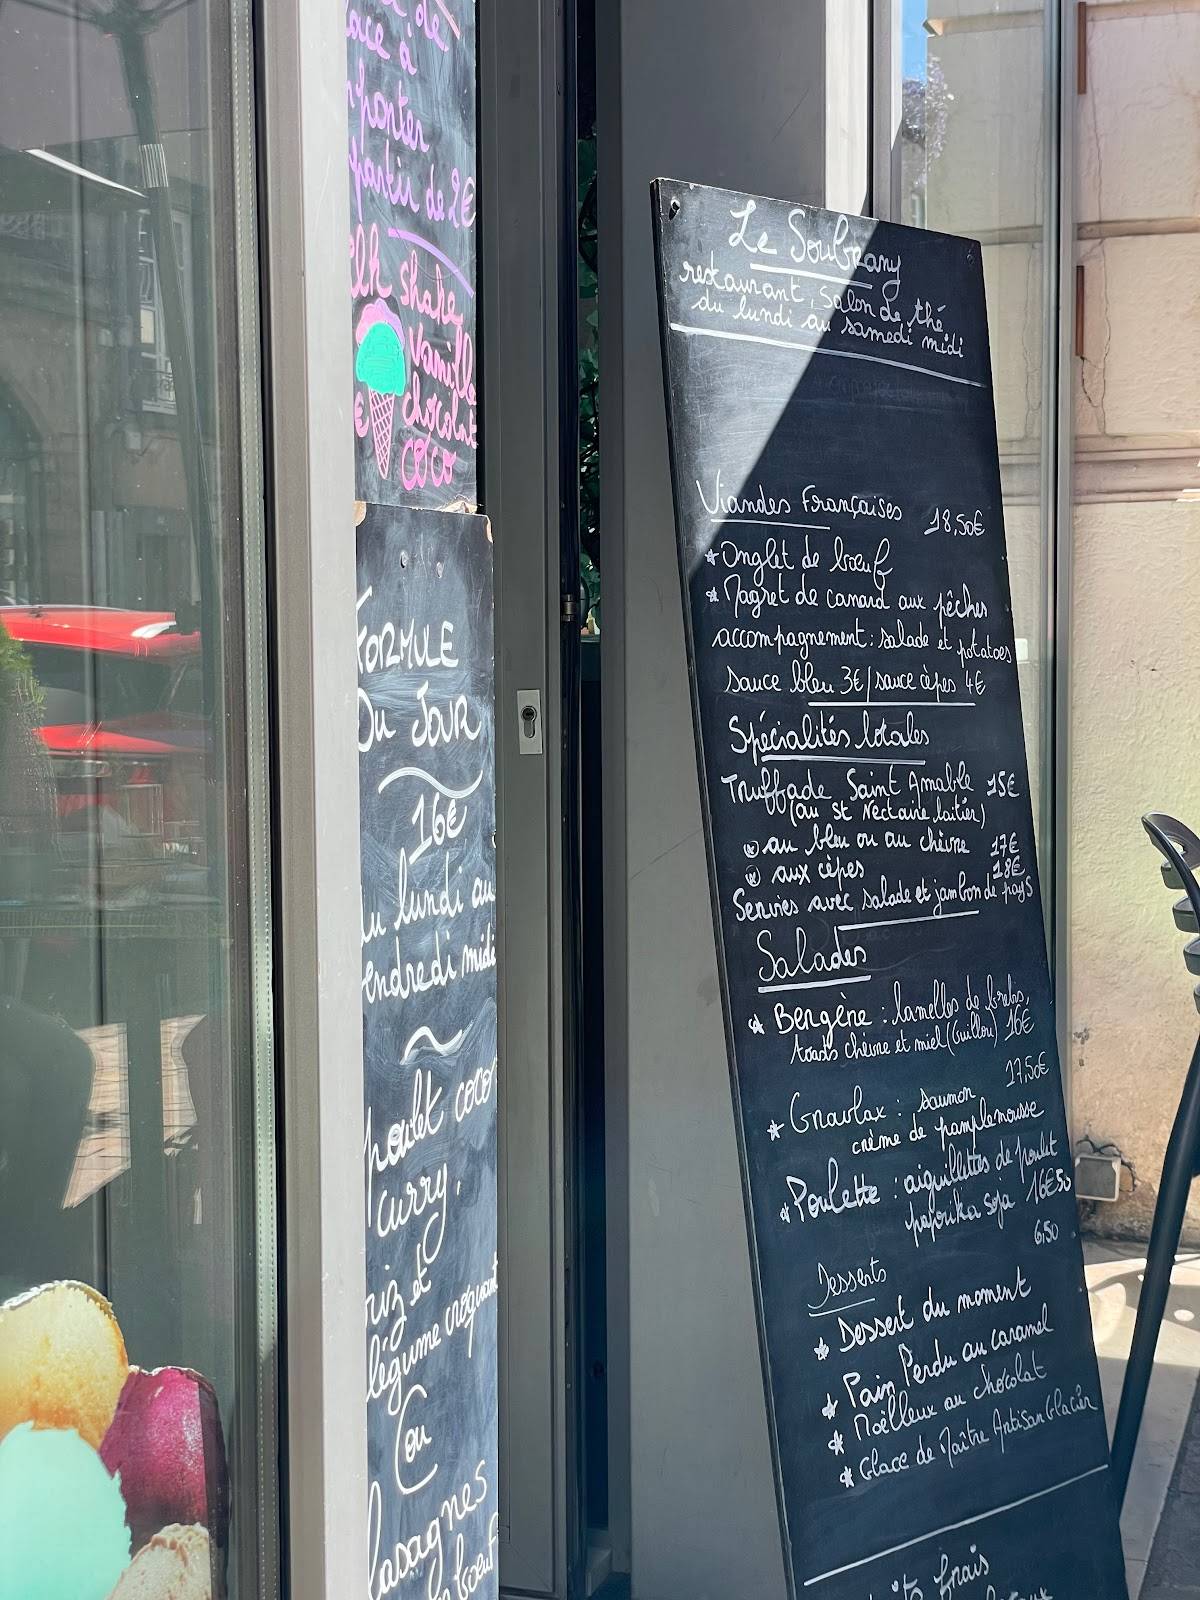 de
à
partir de 2€
shake
Vanille
chocolat
€ coco
FORMULE
Du JOUR
16€
lundi au
endredi midi
poulet coco
curry,
riz et
légume croquant
ou
lasagnes
boeuf
Le Soubrany
restaurant, salon de thé
du lundi au samedi midi
Viandes Françaises 18,50€
* Onglet de bœuf
* Magret de canard aux pêches
accompagnement : salade et potatoes
sauce bleu 3€/sauce cèpes 4€
Spécialités locales
Truffade Saint Amable 15€
(au st Nectaire laitier)
au bleu ou au chèvre 17€
aux cèpes 18€
Servies avec salade et jambon de pays
Salades
* Bergère : lamelles de brebis,
toasts chèvre et miel (Guillou) 16€
17,50€
* Gravlax : saumon
crème de pamplemousse
* Poulette : aiguillettes de poulet
paprika soja 16€50
6,50
Desserts
* Dessert du moment
* Pain Perdu au caramel
* Moëlleux au chocolat
* Glace de Maître Artisan Glacier
frais